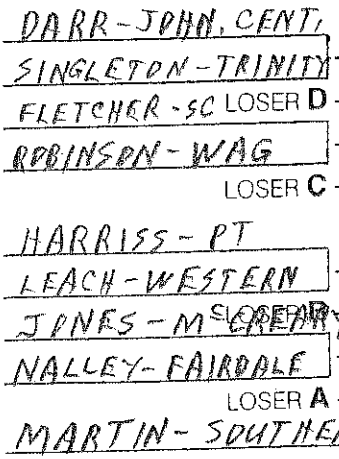 DARR-JOHN. CENT.
SINGLETON-TRINITY
FLETCHER-SC LOSER D
ROBINSON-WAG
LOSER C
HARRISS-PT
LEACH-WESTERN
JONES-McCREARY
NALLEY-FAIRDALE
LOSER A
MARTIN-SOUTHE